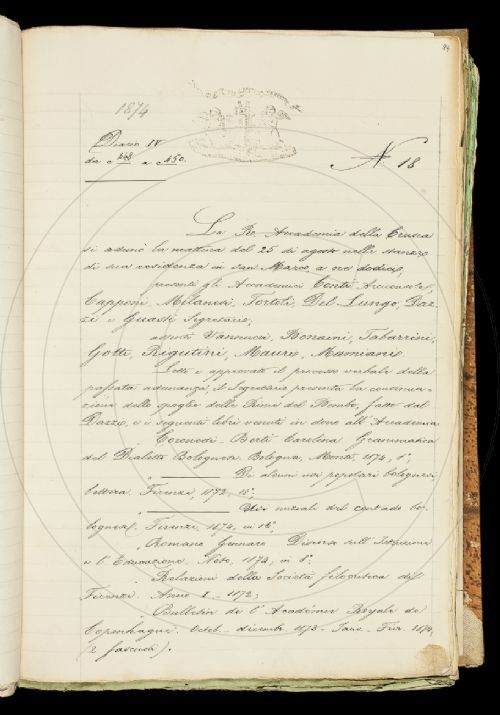 44
1874
Diario IV
da c. 248 a c. 250.
N. 18
La R. Accademia della Crusca
si adunò la mattina del 25 di agosto nelle stanze
di sua residenza in San Marco, a ore dodici,
presenti gli Accademici Conti Arciconsolo,
Capponi, Milanesi, Tortoli, Del Lungo, Daz-
zi e Guasti Segretario;
assenti Vannucci, Bonaini, Tabarrini,
Gotti, Rigutini, Mauro, Mamiani.
Letto e approvato il processo verbale della
passata adunanza, il Segretario presenta la continua-
zione dello spoglio delle Rime del Bembo, fatto dal
Dazzi, e i seguenti libri venuti in dono all'Accademia
Coronedi Berti Carolina Grammatica
del Dialetto Bolognese. Bologna, Monti, 1874, 8°;
Di alcuni usi popolari bolognesi,
lettera. Firenze, 1872, 12°;
Usi nuziali del contado bo-
lognese. Firenze, 1874, in 16°;
Romano Gennaro Discorso sull'Istruzione
e l'Educazione. Noto, 1874, in 8°;
Relazioni della Società filojatrica di
Firenze. Anno I - 1872;
Bulletin de l'Académie Royale de
Copenhague. Octob. - décemb. 1873 - Janv. - Fév. 1874,
(2 fascicoli).